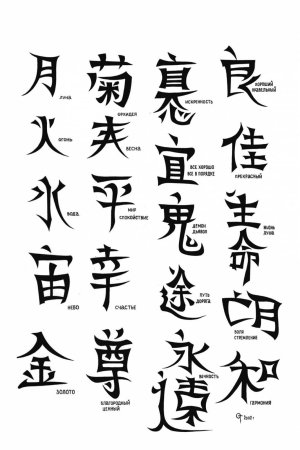 月
ЛУНА
火
ОГОНЬ
水
ВОДА
宙
НЕБО
金
ЗОЛОТО
菊
ОРХИДЕЯ
夫
ВЕСНА
平
МИР
СПОКОЙСТВИЕ
幸
СЧАСТЬЕ
尊
БЛАГОРОДНЫЙ
ЦЕННЫЙ
ИСКРЕННОСТЬ
宜
ВСЕ ХОРОШО
ВСЕ В ПОРЯДКЕ
鬼
ДЕМОН
ДЬЯВОЛ
途
ПУТЬ
ДОРОГА
永
遠
ВЕЧНОСТЬ
良
ХОРОШИЙ
佳
ПРЕКРАСНЫЙ
生
命
ЖИЗНЬ
ДУША
ВОЛЯ
СТРЕМЛЕНИЕ
和
ГЕРМОНИЯ